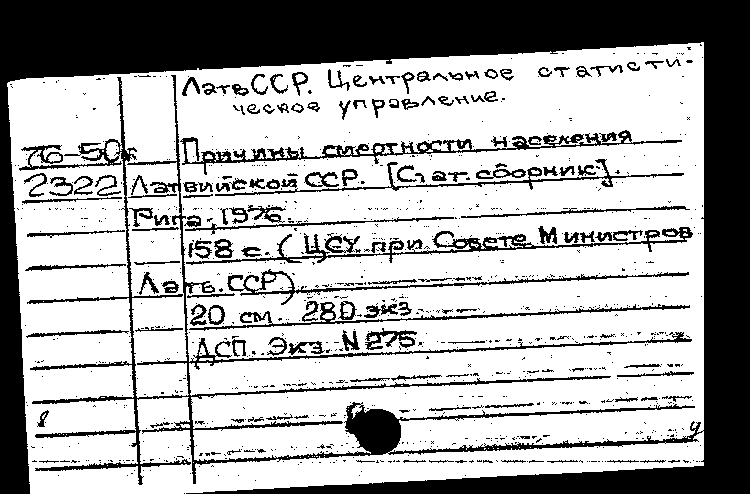 ЛатвССР. Центральное статисти-
ческое управление.
76-50к Причины смертности населения
2322 Латвийской ССР. [Стат. сборник].
Рига, 1976.
158 с. (ЦСУ при Совете Министров
Латв. ССР)
20 см. 280 экз.
ДСП. Экз. N 275.